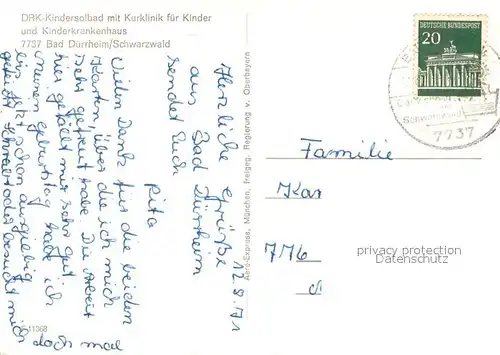 DRK-Kindersolbad mit Kurklinik für Kinder
und Kinderkrankenhaus
7737 Bad Dürrheim/Schwarzwald
DEUTSCHE BUNDESPOST
20
7737
12.8.71
Herzliche Grüße
aus Bad Dürrheim
sendet Euch
Rita
Vielen Dank für die beiden
Karten über die ich mich
sehr gefreut habe. Die Arbeit
hier gefällt mir sehr gut.
meinen Geburtstag habe ich
schon ausgiebig
gefeiert. Schreibt oder besucht mich
doch mal
Aero-Express, München, freigeg. Regierung v. Oberbayern
Familie
Kar
776
privacy protection
Datenschutz